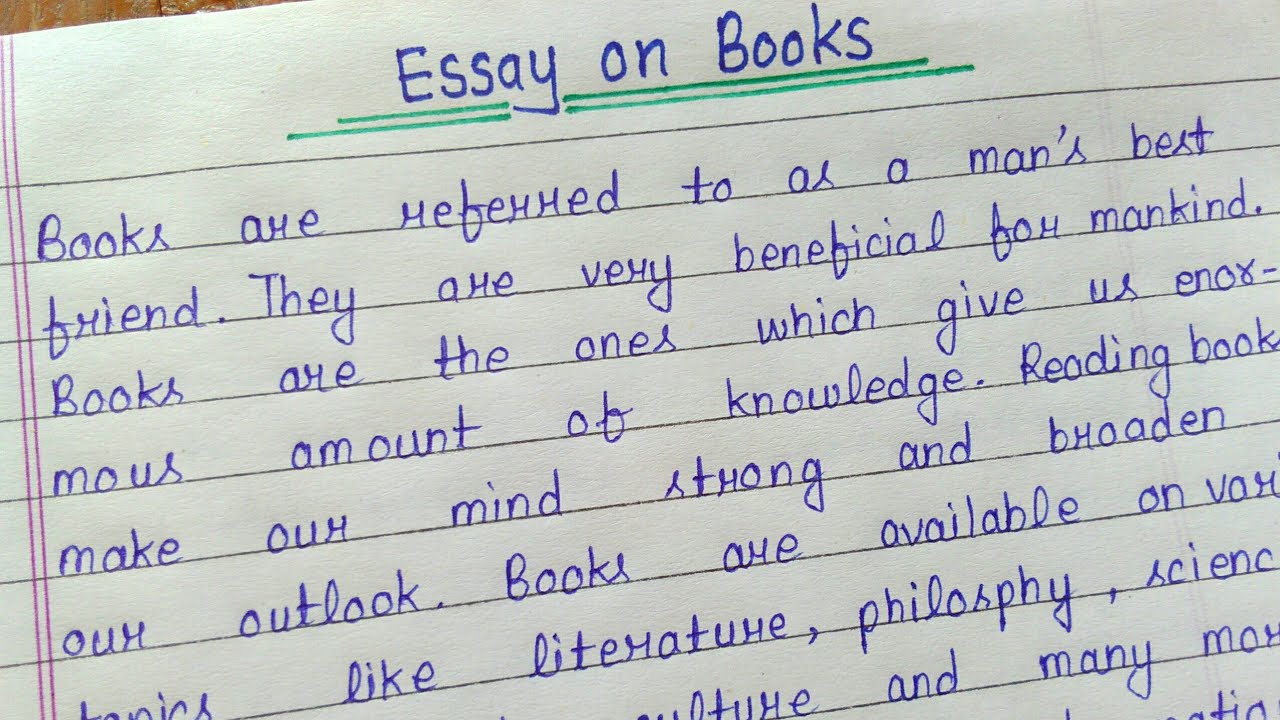 Essay on Books
Books are referred to as a man's best
friend. They are very beneficial for mankind.
Books are the ones which give us enor-
mous amount of knowledge. Reading book
make our mind strong and broaden
our outlook. Books are available on vari
topics like literature, philosphy, scienc
and many mor